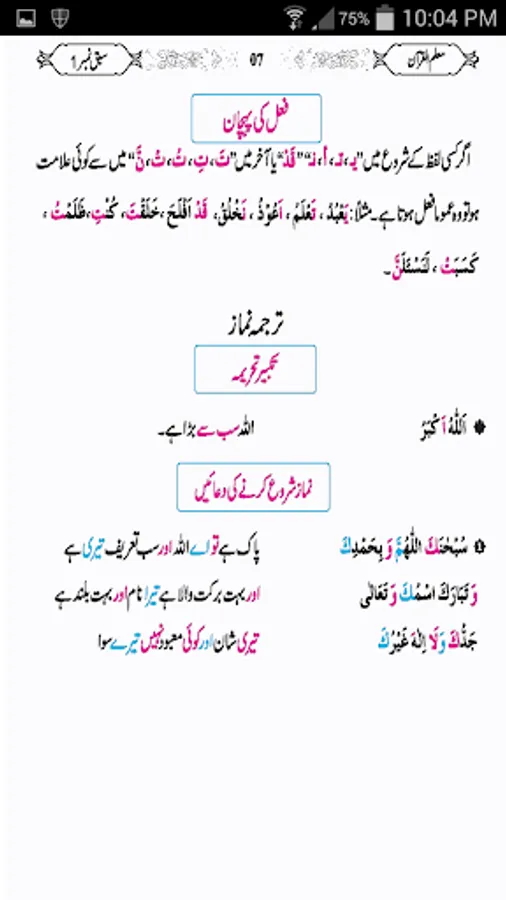 75% 10:04 PM
معلم القرآن 07 سبق نمبر 1
فعل کی پہچان
اگر کسی لفظ کے شروع میں ”یـ، تـ، أ، نـ“ ”قَدْ“ یا آخر میں ”تَ، تِ، تُ، تْ، نَّ“ میں سے کوئی علامت
ہو تو وہ عموما فعل ہوتا ہے۔ مثلاً: یَعْبُدُ، تَعْلَمُ، اَعُوْذُ، نَخْلُقُ، قَدْ اَفْلَحَ، خَلَقْتَ، کُنْتِ، ظَلَمْتُ،
کَسَبَتْ، لَتُسْئَلُنَّ۔
ترجمہ نماز
تکبیر تحریمہ
اَللّٰهُ اَكْبَرُ اللہ سب سے بڑا ہے۔
نماز شروع کرنے کی دعائیں
سُبْحٰنَكَ اللّٰهُمَّ وَ بِحَمْدِكَ پاک ہے تو اے اللہ اور سب تعریف تیری ہے
وَ تَبَارَكَ اسْمُكَ وَ تَعَالٰى اور بہت برکت والا ہے تیرا نام اور بہت بلند ہے
جَدُّكَ وَلَا اِلٰهَ غَيْرُكَ تیری شان اور کوئی معبود نہیں تیرے سوا